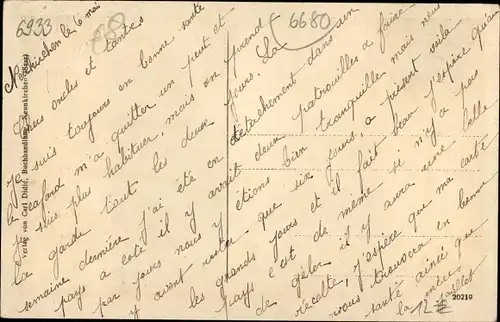 6933
88
6680
Neukirchen le 6 mai
Chers oncles et tantes
Je suis toujours en bonne santé
le cafard m'a quitter un peut et
Je suis plus habituer, mais on prend
la garde tout les deux jours. La
semaine dernière j'ai été en détachement dans un
pays a coté il y avait deux patrouilles a faire
par jours nous y étions bien tranquille mais nous
y avont rester que six jours, a présent voila
les grands jours et il fait beau j'espère qu'au
pays c'est de même si n'y a pas
de gelée il y aura une belle
récolte, j'espère que ma carte
vous trouvera en bonne
santé ainsie que
la mère
Juillet
Verlag von Carl Didié, Buchhandlung, Neunkirchen (Saar)
20219